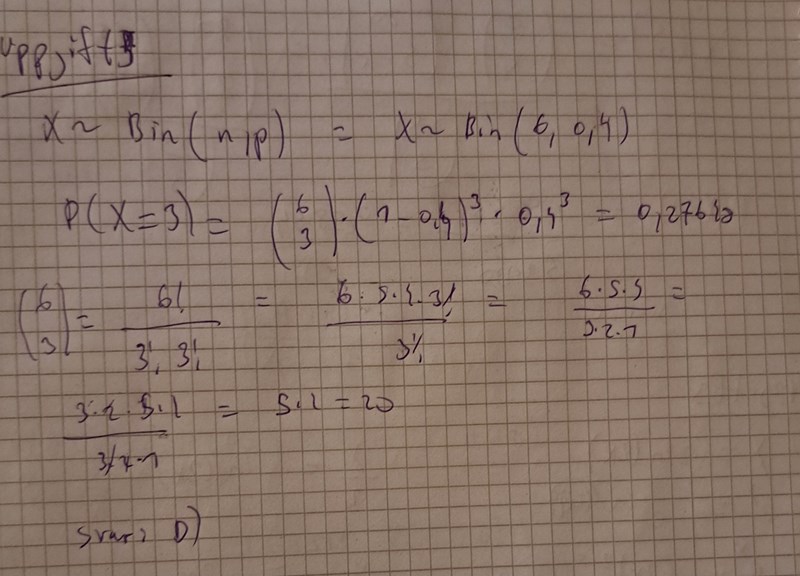 Uppgift 3
X ~ Bin(n,p) = X ~ Bin(6, 0,4)
P(X=3) = (6 3) · (1-0,4)^3 · 0,4^3 = 0,27648
(6 3) = 6! / 3! 3! = 6·5·4·3! / 3! = 6·5·4 / 3·2·1 =
3·2·5·4 / 3·2·1 = 5·4 = 20
Svar: D)